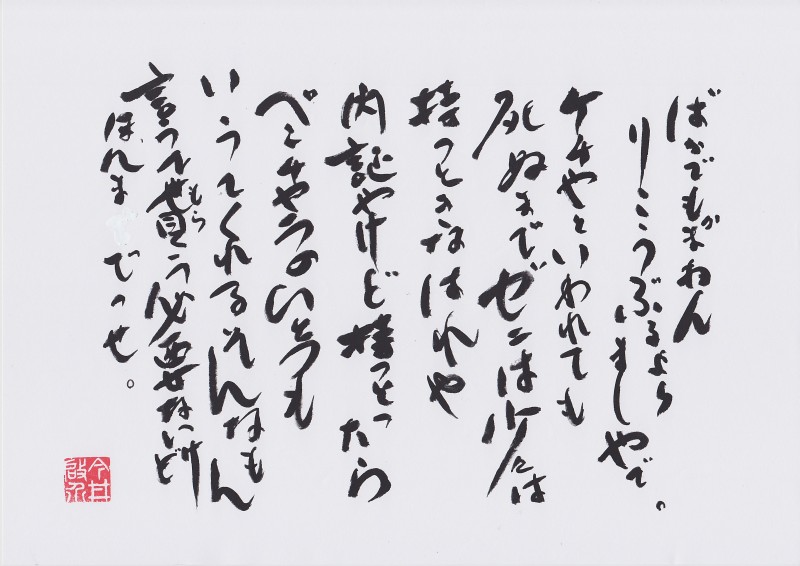 ばかでもかまわん
りこうぶるよら
ましやで。
ケチやといわれても
死ぬまでゼニは少しは
持っときなはれや
内証やけど持っとったら
べんちゃらのいとつも
いうてくれるそんなもん
言うて貰う必要ないけど
もら
ほんま
でっせ。
今井